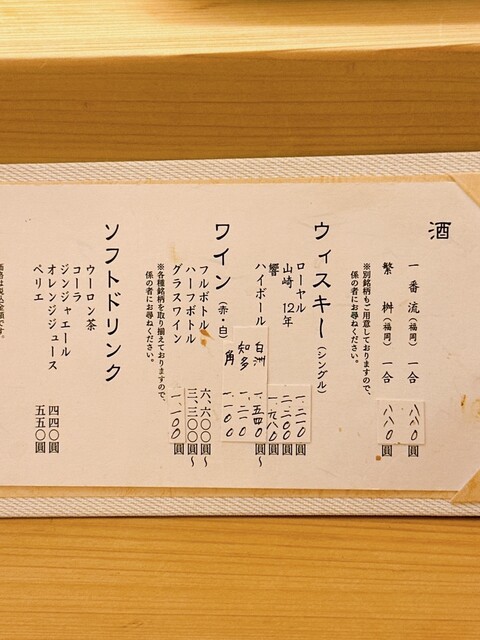 酒
一番流(福岡) 一合 八八〇圓
繁桝(福岡) 一合 八八〇圓
※別銘柄もご用意しておりますので、
係の者にお尋ねください。
ウィスキー(シングル)
ローヤル 一、二一〇圓
山崎 12年 二、二〇〇圓
響 一、九八〇圓
ハイボール 白洲 一、五四〇圓〜
知多 一、二一〇
角 一、一〇〇
ワイン(赤・白)
フルボトル 六、六〇〇圓〜
ハーフボトル 三、三〇〇圓〜
グラスワイン 一、一〇〇圓
※各種銘柄を取り揃えておりますので、
係の者にお尋ねください。
ソフトドリンク
ウーロン茶
コーラ
ジンジャエール
オレンジジュース 四四〇圓
ペリエ 五五〇圓
価格は税込金額です。